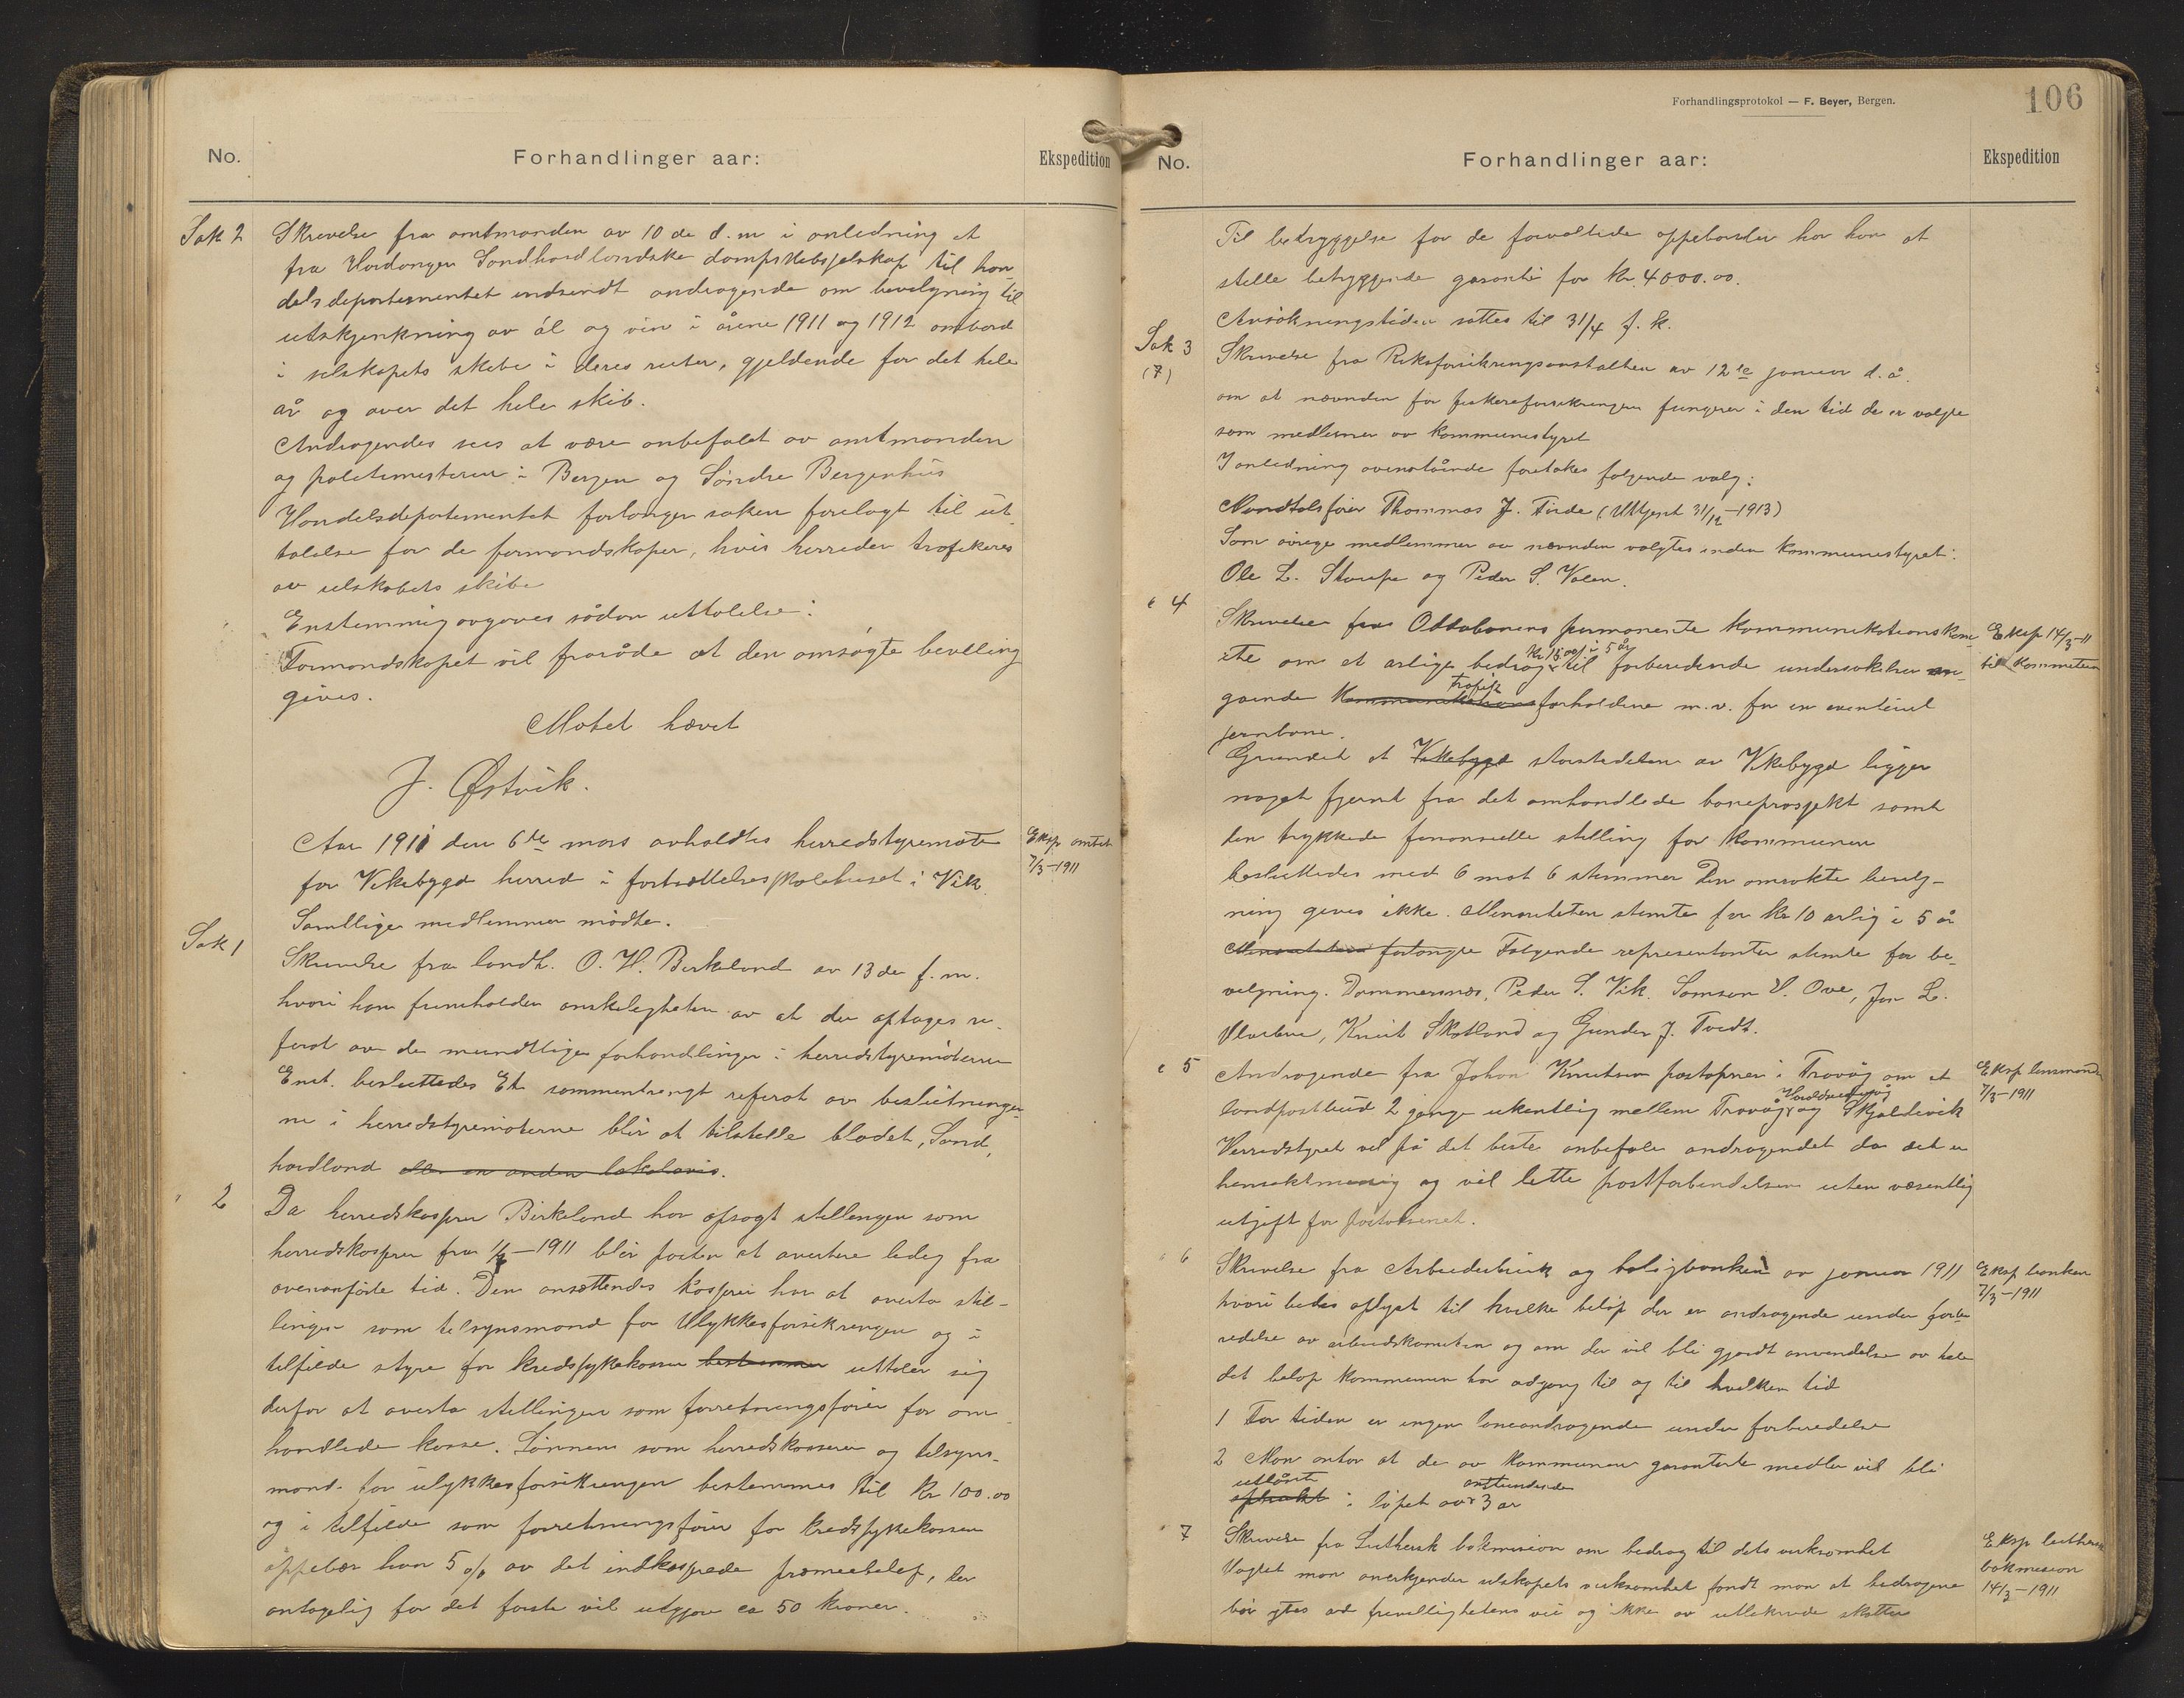 No.
Forhandlinger aar:
Ekspedition
Sak 2
Skrivelse fra amtmanden av 10 de d.m i anledning et
fra Hardanger Søndhordlandske dampskibsselskap til han-
delsdepartementet indsendt andragende om bevilgning til
utskjenkning av öl og vin i årene 1911 og 1912 ombord
i selskapets skibe i deres ruter, gjeldende for det hele
år og over det hele skib.
Andragendes sees at være anbefalet av amtmanden
og politimesteren i Bergen og Søndre Bergenhus
Handelsdepartementet forlanger saken forelagt til ut-
talelse for de formandskaper, hvis herreder trafikeres
av selskabets skibe
Enstemmig avgaves sådan uttalelse:
Formandskapet vil fraråde at den omsøgte bevilling
gives.
Møtet hævet
J. Østvik.
Aar 1911 den 6te mars avholdtes herredstyremøte
for Vikebygd herred i fortsættelsesskolehuset i Vik
Samtlige medlemmer mödte.
Eksp amtet
7/3-1911
Sak 1
Skrivelse fra landh. O. H. Birkeland av 13 de f.m.
hvori han fremholder ønskeligheten av at der optages re-
ferat av de mundtlige forhandlinger i herredstyremöterne
Enst. besluttedes Et sammentrængt referat av beslutninger-
ne i herredstyremøterne blir at tilstille bladet, Sønd,
hordland eller en anden lokalavis.
2
Da herredskasserer Birkeland har opsagt stillingen som
herredskasserer fra 1/4-1911 blir posten at avertere ledig fra
ovenanførte tid. Den ansættendes kasserer har at overta stil-
lingen som tilsynsmand for Ulykkesforsikringen og i
tilfelde styre for kredssykekassen bestemmer uttaler sig
derfor at overta stillingen som forretningsfører for om-
handlede kasse. Lönnen som herredskasserer og tilsyns-
mand for ulykkesforsikringen bestemmes til kr 100.00
og i tilfelde som forretningsfører for kredssykekassen
oppebær han 5 o/o av det indkasserede præmiebeløp, der
antagelig for det første vil utgjøre ca 50 kroner.
Forhandlingsprotokol — F. Beyer, Bergen.
106
No.
Forhandlinger aar:
Ekspedition
Til betryggelse for de forvaltede oppebørsler har han at
stille betryggende garanti for kr. 4000.00.
Ansøkningstiden sattes til 31/4 f. k.
Sak 3
(7)
Skrivelse fra Riksforsikringsanstalten av 12te januar d.å.
om at nævnden for fiskerforsikringen fungerer i den tid de er valgte
som medlemer av kommunestyret
I anledning ovenstående foretakes følgende valg:
Mandtalsfører Thommas J. Tinde (Uttjent 31/12-1913)
Som øvrige medlemmer av nævnden valgtes inden kommunestyret:
Ole L. Stumpe og Peder S. Valen.
" 4
Skrivelse fra Ottabanens permanente kommunikationskom-
ite om et årlige bedrag kr 15.00 i 5 år til forberedende undersøkelser an-
gående kommunikations trafik forholdene m.v. for en eventuel
jernbane.
Eksp 14/3-11
til kommiteen
Grundet at Vikebygd størstedelen av Vikebygd ligger
noget fjernt fra det omhandlede baneprosjekt samt
den trykkede finansielle stilling for kommunen
besluttedes med 6 mot 6 stemmer Den omsøkte bevilg-
ning gives ikke. Minoriteten stemte for kr 10 årlig i 5 år
Minoriteten forlangte Følgende representanter stemte for be-
vilgning. Dommersnes, Peder S. Vik. Samson V. Ove, Jon L.
, Knut Skotland og Gunder J. Tvedt.
" 5
Andragende fra Johan Knutsen postopner i Travåg om et
landpostbud 2 gange ukentlig mellem Travåg, og Skjoldevik
Herredstyret vil på det beste anbefale andragendet da det er
hensiktmessig og vil lette postforbindelsen uten væsentlig
utgift for postvæsenet.
Eksp lensmand
7/3-1911
" 6
Skrivelse fra Arbeiderbruk og boligbanken av januar 1911
hvori bedes oplyst til hvilke beløp der er andragende under forbe-
redelse av arbeidskomiteen og om der vil bli gjordt anvendelse av hele
det beløp kommunen har adgang til og til hvilken tid
1 For tiden er ingen låneandragende under forberedelse
2 Man antar at de av kommunen garanterte midler vil bli
utlånte
opbrukt i løpet av anstundende 3 år
Eksp banken
7/3-1911
" 7
Skrivelse fra Luthersk bokmission om bedrag til dets virksomhet
Vagtet man anerkjender selskapets virksomhet fandt man at bedragene
bör ytes ad frevillighetens vei og ikke av utliknede skatter
Eksp luthersk
bokmission
14/3-1911